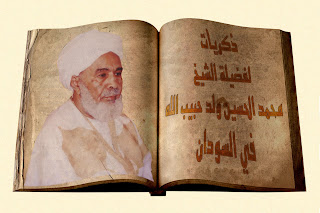 ذكريات
لفضيلة الشيخ
محمد الحسين ولد حبيب الله
في السودان